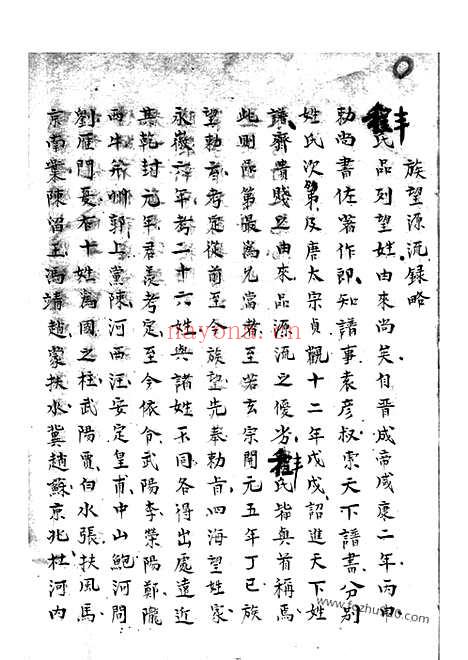 族望源流錄略
氏品列望姓由來尚矣自晋成帝咸康二年丙申
勅尚書佐著作郎知譜事袁彦叔索天下譜書分别
姓氏次第及唐太宗貞觀十二年戊戌詔進天下姓
譜齊貴賤之由來品源流之優劣氏皆與首稱焉
此則區第最為允當者至若玄宗開元五年丁巳族
望勅旨考定從前至今族望先奉勅旨四海望姓家
永徽六年考二十六姓與諸姓不同各得出處遠近
其乾封元年君羨考定至今依令武陽李滎陽鄭隴
西牛郭上黨陳河西汪安定皇甫中山鮑河間
劉雁門夏右十姓為國之柱武陽賈白水張扶風馬
京南葉陳留王馮靖趙蒙扶水冀趙蘇京兆杜河内
nayona.cn
www.fozhu920.com